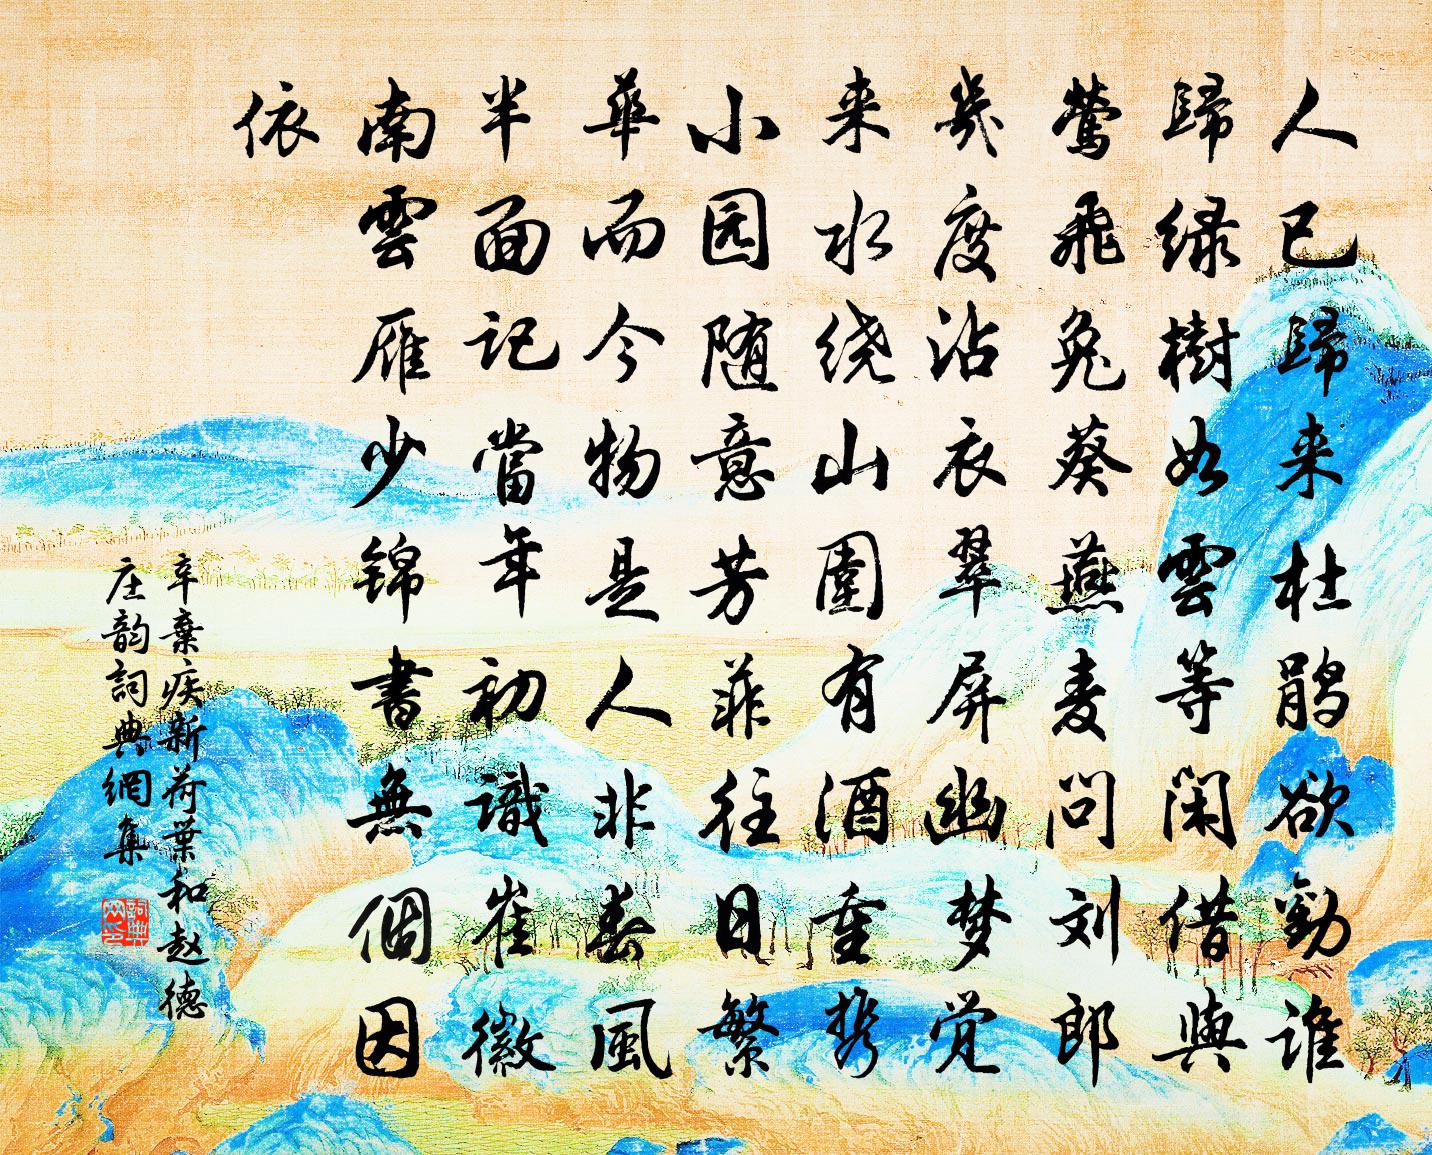 人已歸来杜鹃欲勸谁
歸绿樹如雲等闲借與
莺飛兔葵燕麦问刘郎
幾度沾衣翠屏幽梦觉
来水绕山圍有酒重携
小园随意芳菲往日繁
華而今物是人非春風
半面记當年初識崔徽
南雲雁少锦書無個因
依
辛棄疾新荷葉和赵德
庄韵詞典網集